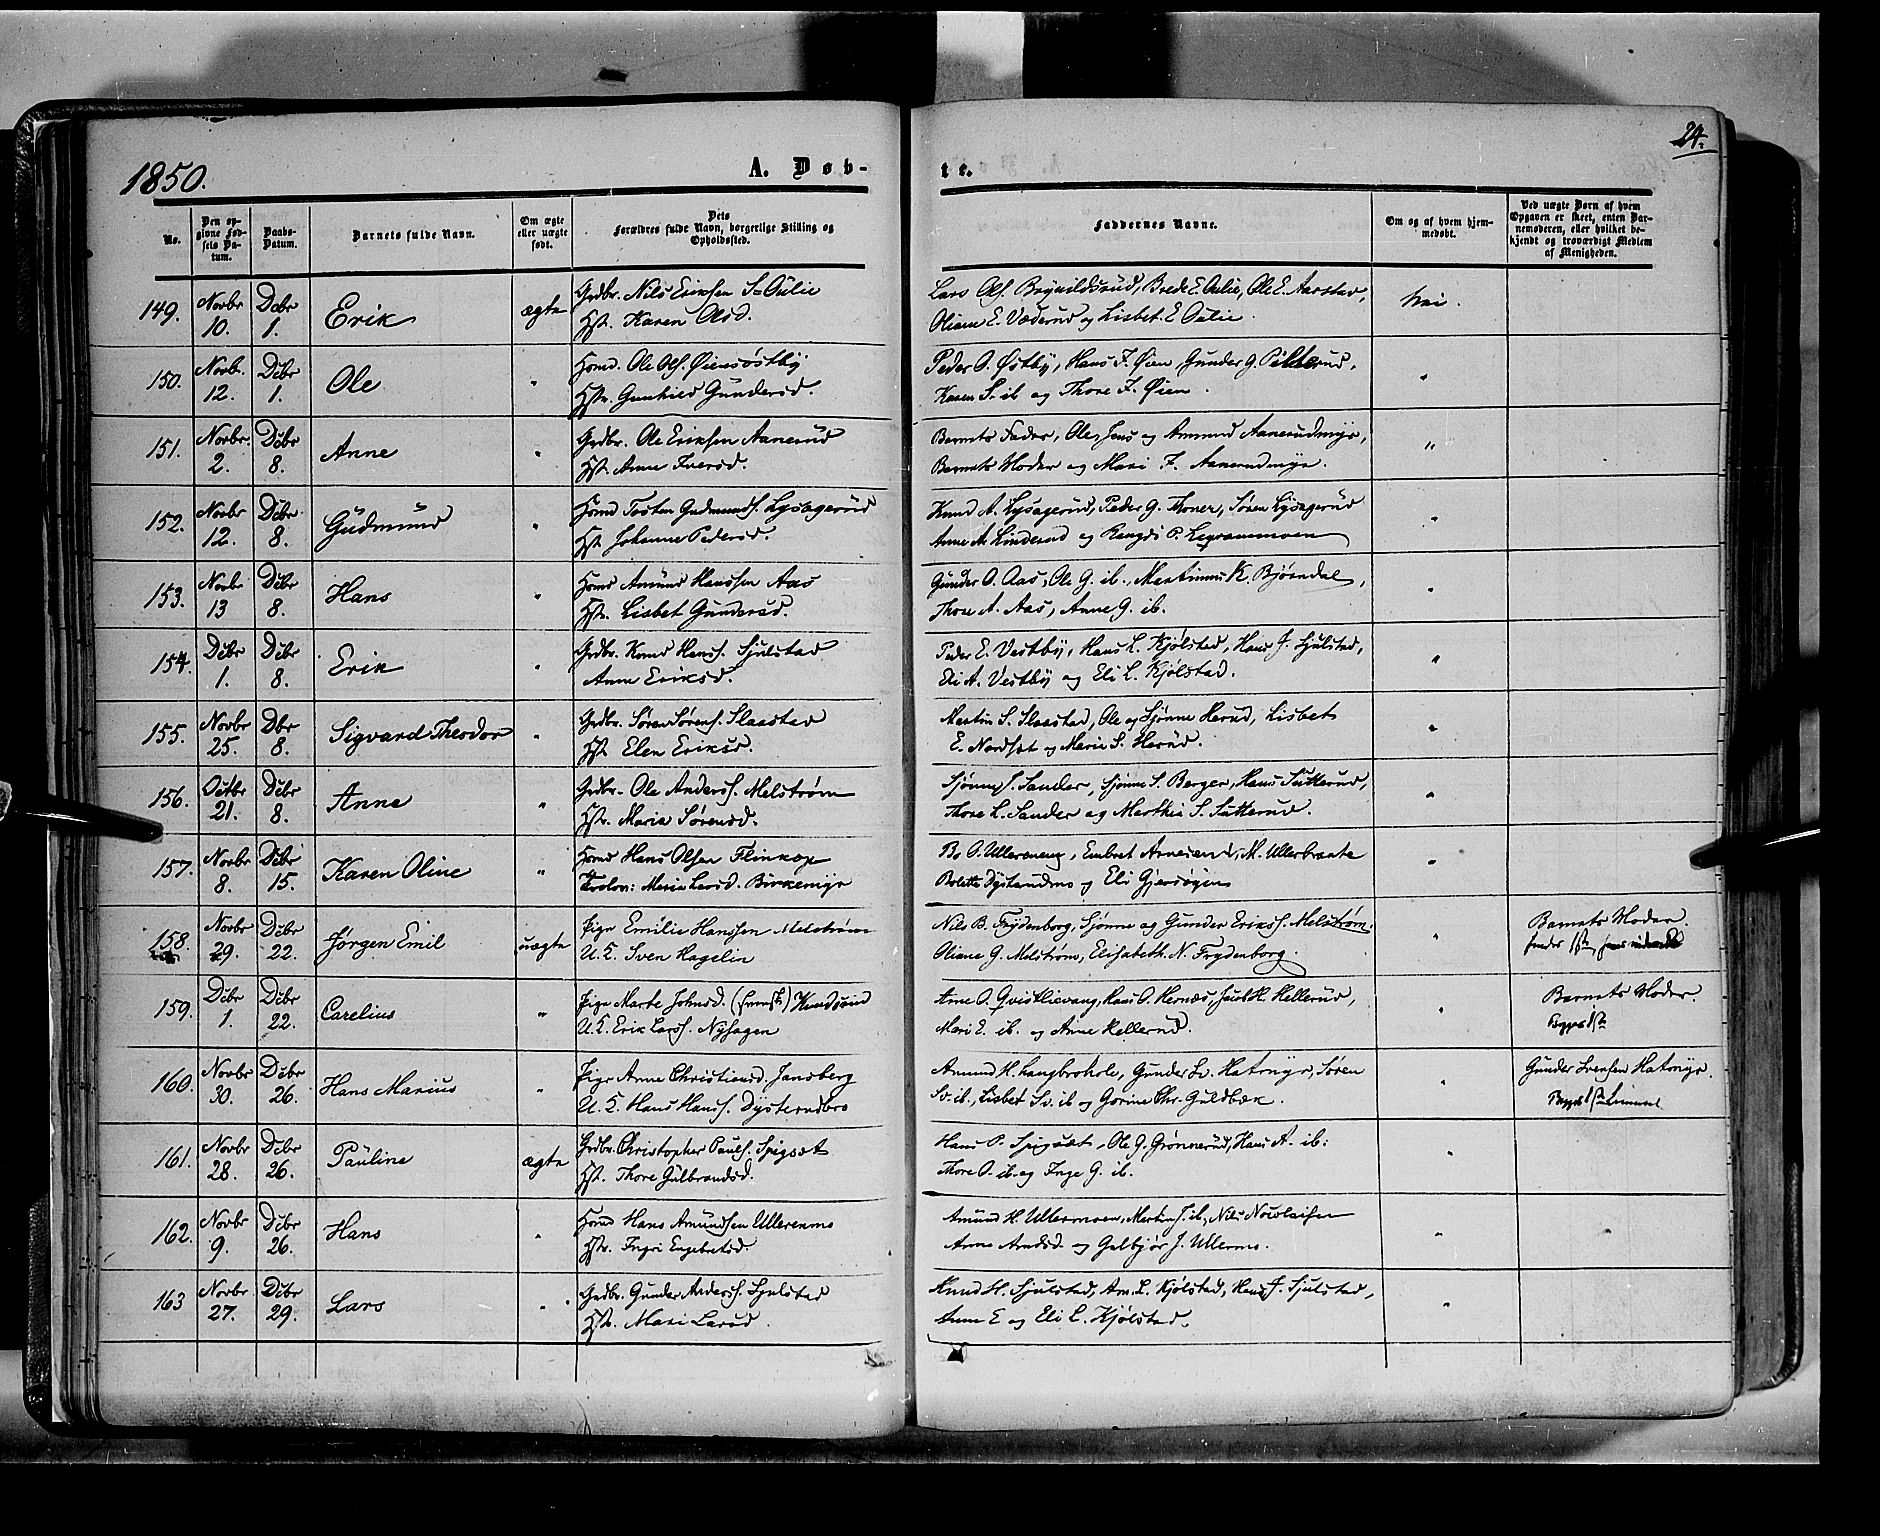 24.
1850.
A. Døb-
te.
No.
Den opgivne Fødsels Datum.
Daabs-Datum.
Barnets fulde Navn.
Om ægte eller uægte født.
Dets Forældres fulde Navn, borgerlige Stilling og Opholdssted.
Faddernes Navne.
Om og af hvem hjemmedøbt.
Ved uægte Børn af hvem Opgaven er skeet, enten Barnemoderen, eller hvilket bekjendt og troværdigt Medlem af Menigheden.
149. Novbr 10. Dcbr 1. Erik ægte Grdbr. Nils Eriksen S-Oulie
Hst. Karen Olsd.
Lars Ols. Brynildsrud, Brede E. Oulie, Ole E. Aarstad,
Oliane E. Væderud og Lisbet E Oulie.
Nei.
150. Novb. 12. Dcbr 1. Ole " Hsmd. Ole Ols. Øiensøstby
Hst. Gunhild Gundersd.
Peder O. Østby, Hans F. Øien, Gunder G. Pilterud,
Karen S. ib og Thore F. Øien.
"
151. Novbr. 2. Dcbr 8. Anne " Grdbr. Ole Eriksen Aanerud
Hst. Anne Iversd.
Barnets Fader, Ole, Jens og Amund Aanerudmyr,
Barnets Moder og Mari F. Aanerudmyr.
"
152. Novbr 12. Dcbr 8. Gudmund " Hsmd Tosten Gudmunds. Lysagerud
Hst. Johanne Pedersd.
Knud A. Lysagerud, Peder G. Thoner, Søren Lysagerud
Anne A. Linderud og P.
"
153. Novbr 13 Dcbr 8. Hans " Hsmd Amund Hanssen Aas
Hst. Lisbet Gundersd.
Gunder O. Aas, Ole G. ib., Martinus K. Bjørndal,
Thore A. Aas, Anne G. ib.
"
154. Dcbr 1. Dcbr 8. Erik " Grdbr. Knud Hans. Sjulstad
Anne Eriksd.
Peder E. Vestby, Hans L. Kjølstad, Hans J. Sjulstad,
Eli A. Vestby og Eli L. Kjølstad.
"
155. Novbr 25. Dbr 8. Sigvard Theodor " Grdbr. Søren Sørens. Slaastad
Hst. Elen Eriksd.
Martin S. Slaastad, Ole og Sjønne Herud, Lisbet
E. Nordset og Marie S. Herud.
"
156. Octbr 21. Dcbr 8. Anne " Grdbr. Ole Anders. Melstrøm
Hst. Maria Sørensd.
Sjønne S. Sander, Sjønne S. Berger, Hans Sutterud,
Thore L. Sander og Marthia S. Sutterud.
"
157. Novbr 8. Dcbr 15. Karen Oline " Hsmd Hans Olsen Flinkop
Trolov: Maria Larsd. Birkemyr
Bo O. Ullereneng, Embret Arnesen, M. Ullerbrante
Bolette Dysterudmo og Eli Gjersøyen
"
158. Novbr 29. Dcbr 22. Jørgen Emil uægte Pige Emilie Hanssen Melstrøm
U. K. Sven Hagelin
Nils B. Frydenborg, Sjønne og Gunder Eriks. Melstrøm.
Oliane G. Melstrøm, Elisabeth N. Frydenborg.
"
Barnets Moder.
159. Dcbr 1. Dcbr 22. Carelius " Pige Marte Johnsd. (Svensk)
U. K. Erik Lars. Nyhagen
Arne O. Qvistlievang, Hans O. Hernæs, H. Hellerud,
Mari E. ib. og Anne Hellerud.
"
Barnets Moder.
160. Novbr 30. Dcbr 26. Hans Marius " Pige Anne Christiansd. Jansberg
U. K. Hans Hans. Dysterudbro
Amund H. Langbrohole, Gunder Sv. Hatmyr, Søren
Sv. ib., Lisbet Sv. ib og Gorine Chr. Guldbæk.
"
Gunder Svensen Hatmyr.
161. Novbr 28. Dcbr 26. Pauline ægte Grdbr. Christopher Pauls. Spigset
Hst. Thore Gulbrandsd.
Hans P. Spigset, Ole G. Grønnerud, Hans A. ib:
Thore O. ib. og Inge G. ib.
"
162. Novbr 9. Dcbr 26. Hans " Hsmd Hans Amundsen Ullerenmo
Hst. Ingri Engebretsd.
Amund H. Ullermoen, Martin J. ib, Nils Nicolaisen
Anne Arndsd. og Gulbjør J. Ullermo.
"
163 Novbr 27. Dcbr 29. Lars " Grdbr. Gunder Anders. Sjulstad
Hst. Mari Larsd.
Knud H. Sjulstad, Am. L. Kjølstad, Hans J. Sjulstad,
Anne E og Eli L. Kjølstad.
"